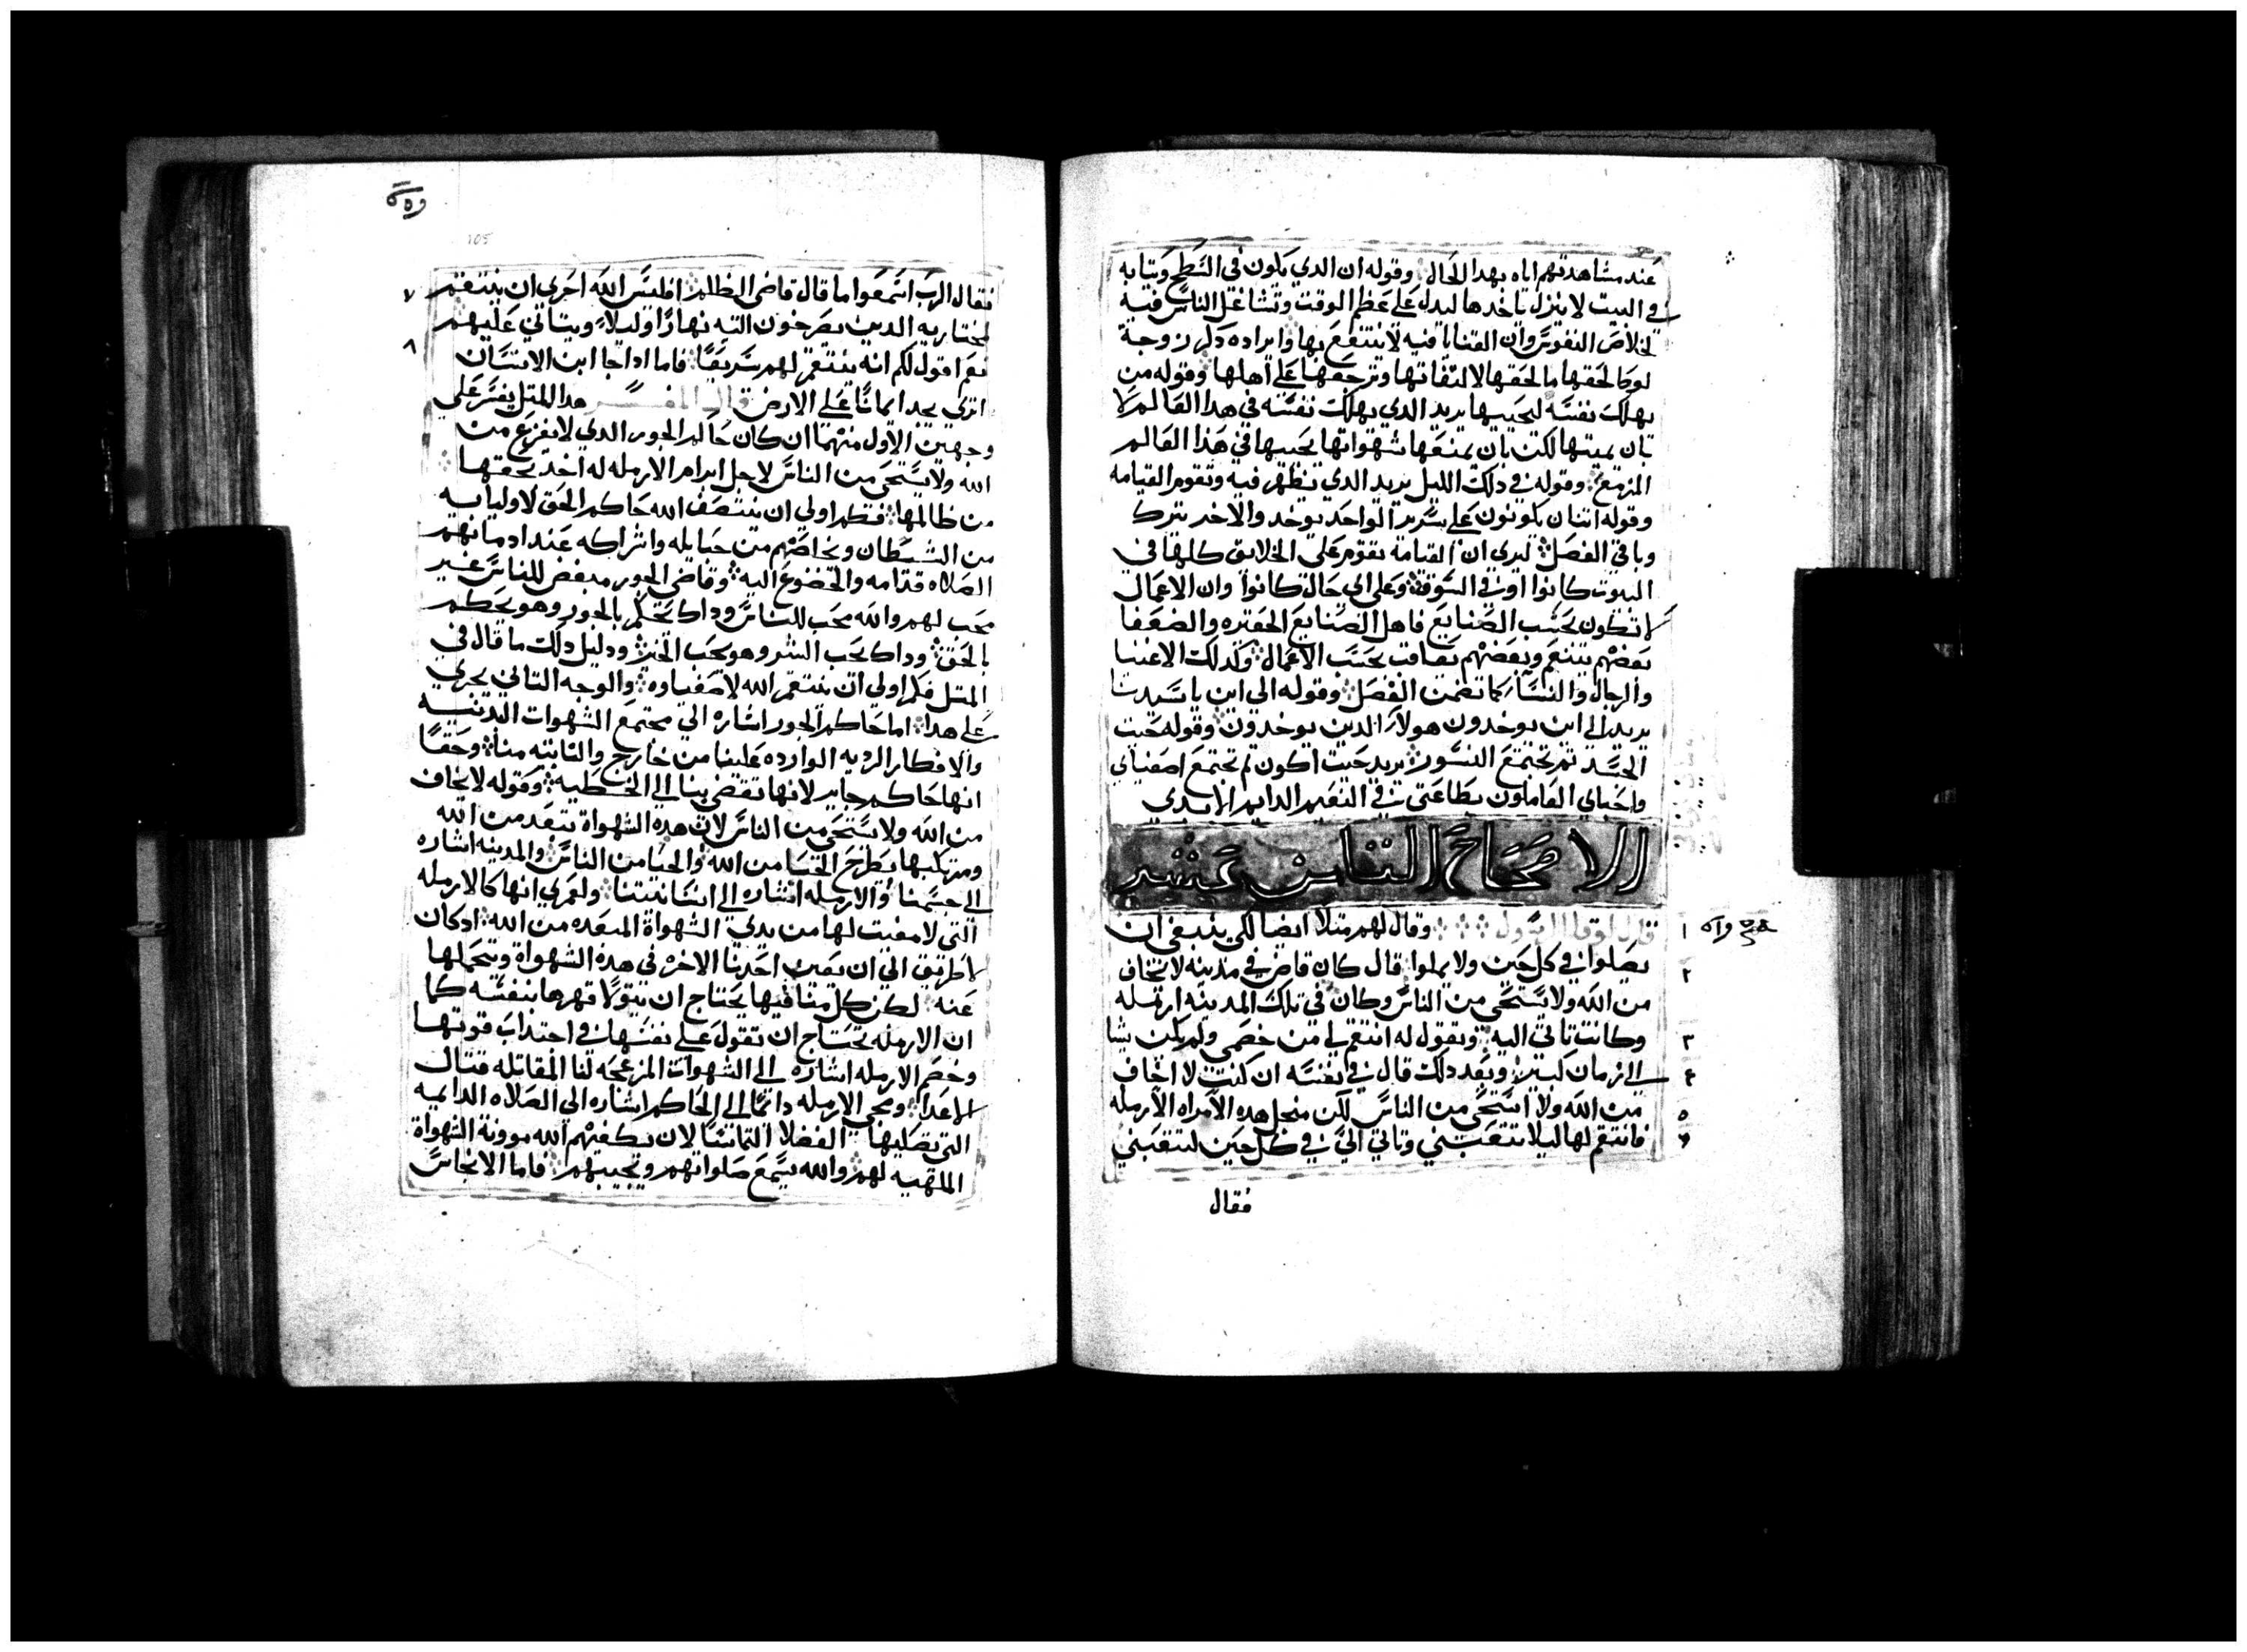 عند مشاهدتهم اياه بهدا الحال وقوله ان الدي يكون في السطح وتيابه
في البيت لا ينزل ياخدها ليدل على عظم الوقت وتشاغل الناس فيه
لخلاص النفوس وان القنايا فيه لا ينتفع بها وايراده دكر زوجة
لوط لحقها ما لحقها لالتفاتها وترجعها على اهلها وقوله من
يهلك نفسه ليحييها يريد الدي يهلك نفسه في هدا العالم لا
بان يميتها لكن بان يمنعها شهواتها يحييها في هدا العالم
المزمع وقوله في دلك الليل يريد الدي تظهر فيه وتقوم القيامه
وقوله اتنان يكونون على سرير الواحد يوخد والاخر يترك
وباقي الفصل ليري ان القيامة تقوم على الخلايق كلها في
البيوت كانوا او في السوقه وعلى اي حال كانوا وان الاعمال
لا تكون بحسب الصنايع فاهل الصنايع الحقيره والضعفا
بعضهم يتنعم وبعضهم يعاقب بحسب الاعمال وكدلك الاغنيا
والرجال والنسا كما تضمن الفصل وقوله الى اين يا سيدنا
يريد الى اين يوخدون هولاء الدين يوخدون وقوله حيت
الجسد تم تجتمع النسور يريد حيت اكون تم تجتمع اصفياي
واحباي العاملون بطاعتي في النعيم الدايم الابدي
الاصحاح التامن عشر
قال لوقا الرسول وقال لهم متلا ايضا لكي ينبغي ان
١
يصلوا في كل حين ولا يملوا قال كان قاض في مدينه لا يخاف
٢
من الله ولا يستحي من الناس وكان في تلك المدينه ارمله
وكانت تاتي اليه وتقول له انتقم لي من خصمي ولم يكن يشا
٣
الى زمان كبير وبعد دلك قال في نفسه ان كنت لا اخاف
٤
من الله ولا استحي من الناس لكن من اجل هده الامراه الارمله
٥
فانتقم لها ليلا تتعبني وتاتي الي في كل حين لتتعبني
فقال
105
فقال الرب اسمعوا ما قال قاضي الظلم افليس الله احرى ان ينتقم
٧
لمختاريه الدين يصرخون اليه نهارا وليلا ويتاني عليهم
نعم اقول لكم انه ينتقم لهم سريعا فاما ادا جا ابن الانسان
٨
اترى يجد ايمانا على الارض قال المفسر هدا المتل يفسر على
وجهين الاول منهما ان كان حاكم الجور الدي لا يفزع من
الله ولا يستحي من الناس لاجل ابرام الارمله له اخد بحقها
من ظالمها فكم اولى ان ينتصف الله حاكم الحق لاوليايه
من الشيطان ويخلصهم من حبايله واشراكه عند ادمانهم
الصلاه قدامه والخضوع اليه وقاضي الجور مبغض للناس غير
محب لهم والله محب للناس وداك يحكم بالجور وهو يحكم
بالحق وداك يحب الشر وهو يحب الخير ودليل دلك ما قال في
المتل فكم اولى ان ينتقم الله لاصفياوه والوجه التاني يجري
على هدا اما حاكم الجور اشاره الى مجتمع الشهوات البدنيه
والافكار الرديه الوارده علينا من خارج والنابته منا وحقا
انها حاكم جاير لانها تفضي بنا الى الخطيه وقوله لا يخاف
من الله ولا يستحي من الناس لان هده الشهواة تبعد من الله
ومرتكبها يطرح الحيا من الله والحيا من الناس والمدينه اشاره
الى جسمنا والارمله اشاره الى انسانيتنا ولعمري انها كالارمله
التي لا مغيت لها من يدي الشهواة المبعده من الله ادكان
لا طريق الى ان يعين احدنا الاخر في هده الشهواة ويتحملها
عنه لكن كل منا فيها يحتاج ان يتولا قهرها بنفسه كما
ان الارمله تحتاج ان تقول على نفسها في اجتداب قوتها
وخصم الارمله اشاره الى الشهوات المزعجه لنا المقاتله قتال
الاعدا ومجي الارمله دايما الى الحاكم اشاره الى الصلاه الدايمه
التي يصليها الفضلا التماسا لان يكفيهم الله موونة الشهواة
الملهيه لهم والله يسمع صلواتهم ويجيبهم فاما الانجاس